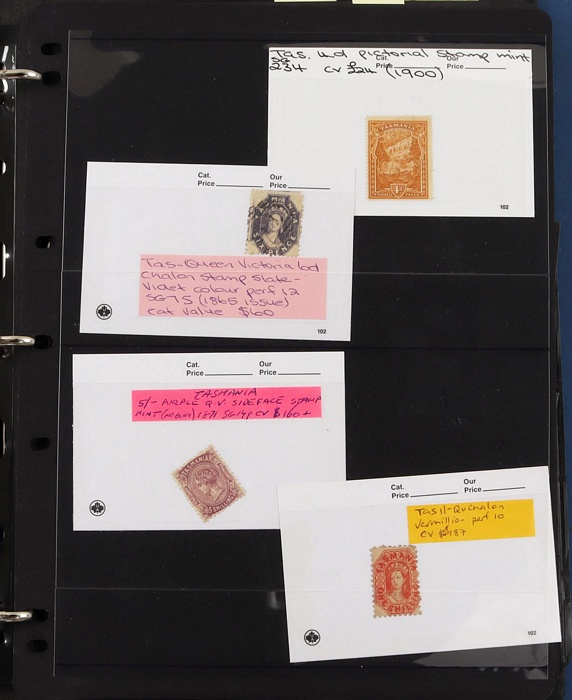 Tas. 4d pictorial stamp mint
SG
234 CV £24 (1900)
Cat.
Price
Our
Price
TASMANIA
4d
102
Cat.
Price
Our
Price
SIX PENCE
Tas-Queen Victoria 6d
Chalon stamp slate-
violet colour perf 12
SG75 (1865 issue)
cat value $60
102
Cat.
Price
Our
Price
TASMANIA
5/- PURPLE Q.V. SIDEFACE STAMP
MINT (NO GUM) 1871 SG149 CV $160+
TASMANIA
Cat.
Price
Our
Price
Tas 1/- QV Chalon
vermillion perf 10
CV $187
TASMANIA
SHILLING
102